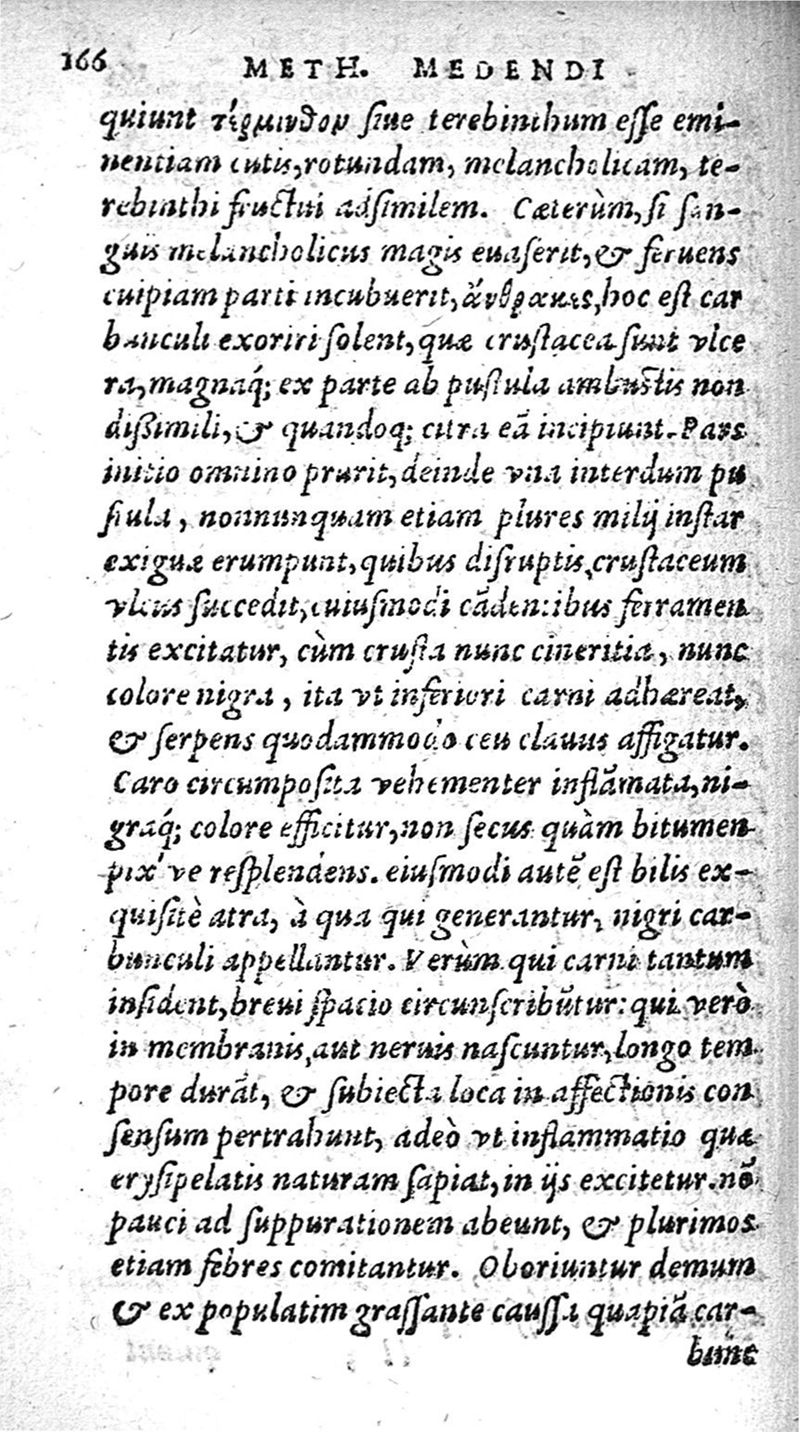 166 METH. MEDENDI
quiunt τέρμινθον ſiue terebinthum eſſe emi-
nentiam cutis, rotundam, melancholicam, te-
rebinthi fructui adſimilem. Cæterùm, ſi ſan-
guis melancholicus magis euaſerit, & feruens
cuipiam parti incubuerit, ἄνθρακες, hoc eſt car
bunculi exoriri ſolent, quæ cruſtacea ſunt vlce
ra, magnaq́; ex parte ab puſtula ambuſtis non
dißimili, & quandoq; citra eã incipiunt. Pars
initio omnino prurit, deinde vna interdum pu
ſtula, nonnunquam etiam plures milij inſtar
exiguæ erumpunt, quibus diſruptis, cruſtaceum
vlcus ſuccedit, cuiuſmodi cãdentibus ferramen
tis excitatur, cùm cruſta nunc cineritia, nunc
colore nigra, ita vt inferiori carni adhæreat,
& ſerpens quodammodo ceu clauus affigatur.
Caro circumpoſita vehementer inflãmata, ni-
graq́; colore efficitur, non ſecus quàm bitumen
pix've reſplendens. eiuſmodi autẽ eſt bilis ex-
quiſitè atra, à qua qui generantur, nigri car-
bunculi appellantur. Verùm qui carni tantum
inſident, breui ſpacio circunſcribũtur: qui verò
in membranis, aut neruis naſcuntur, longo tem
pore durãt, & ſubiecta loca in affectionis con
ſenſum pertrahunt, adeò vt inflammatio quæ
eryſipelatis naturam ſapiat, in ijs excitetur. nõ
pauci ad ſuppurationem abeunt, & plurimos
etiam febres comitantur. Oboriuntur demum
& ex populatim graſſante cauſſa quapiã car-
bunc